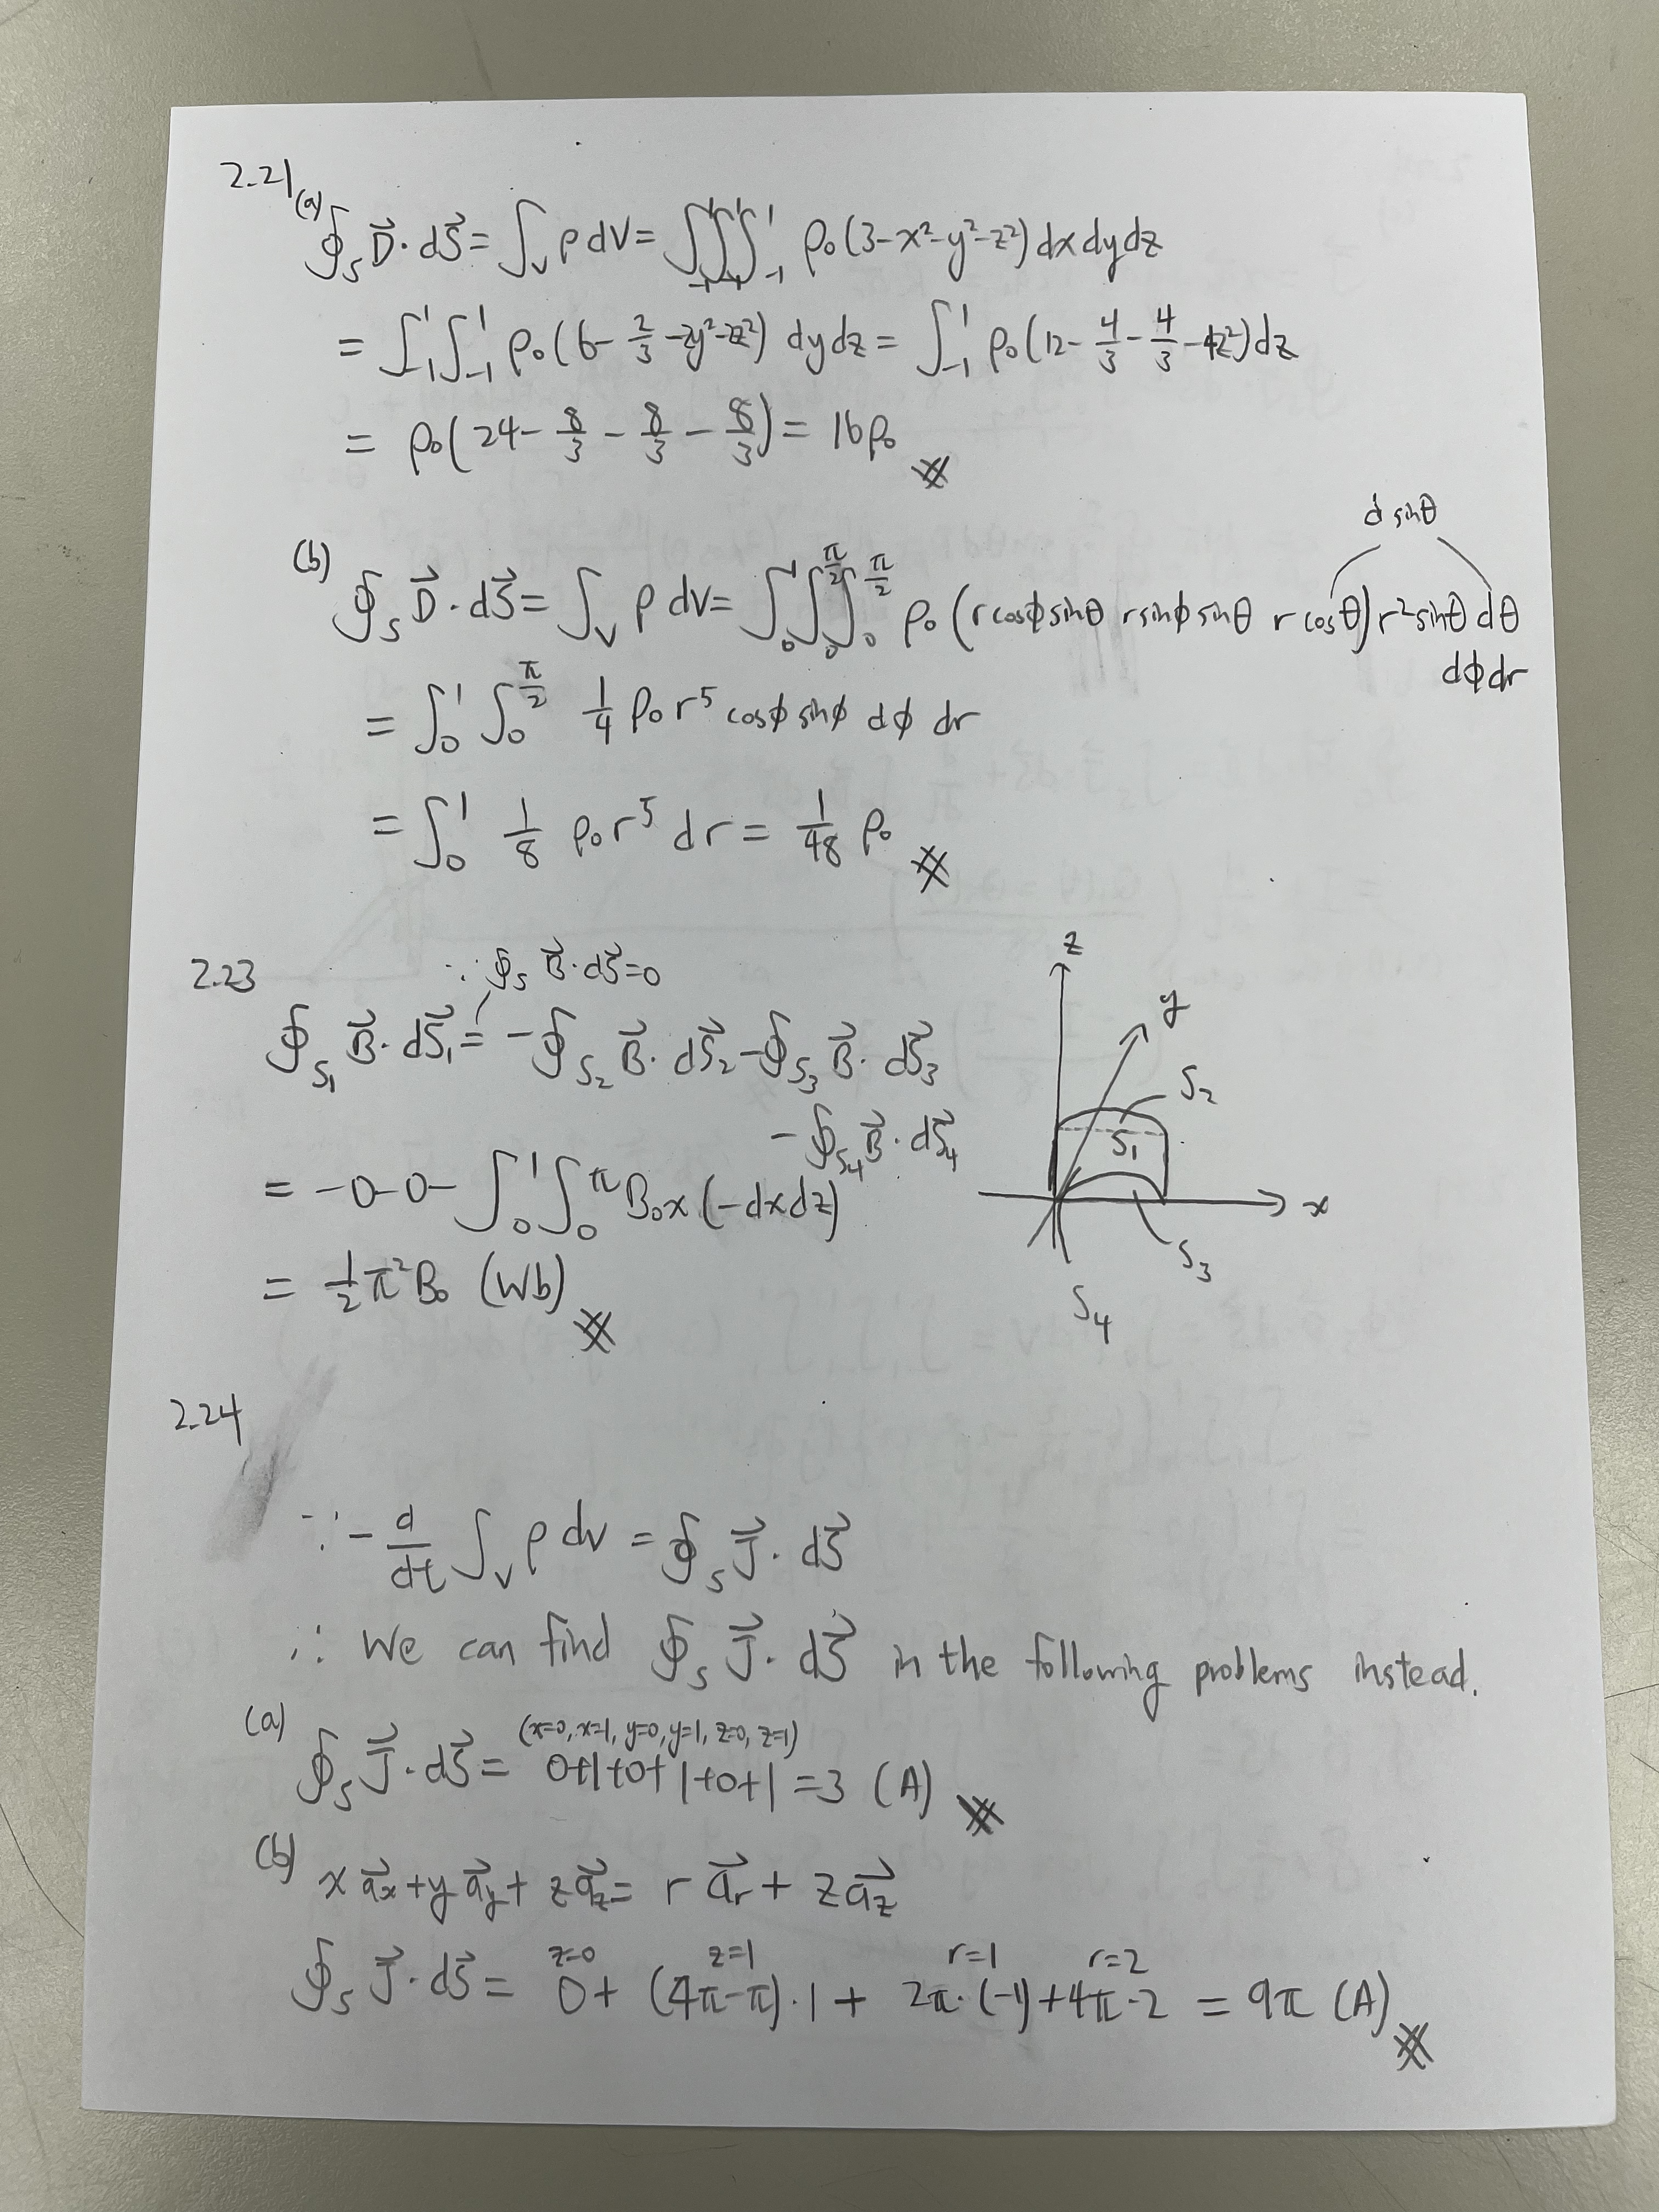 2.21
(a) ∮_S D⃗·dS⃗ = ∫_V ρ dV = ∫_{-1}^{1}∫_{-1}^{1}∫_{-1}^{1} ρ₀(3-x²-y²-z²) dx dy dz
= ∫_{-1}^{1}∫_{-1}^{1} ρ₀(6-2/3-2y²-2z²) dy dz = ∫_{-1}^{1} ρ₀(12-4/3-4/3-4z²) dz
= ρ₀(24-8/3-8/3-8/3) = 16ρ₀
d sinθ
(b) ∮_S D⃗·dS⃗ = ∫_V ρ dV = ∫_0^1∫_0^{π/2}∫_0^{π/2} ρ₀(r cosϕ sinθ r sinϕ sinθ r cosθ) r² sinθ dθ
dϕ dr
= ∫_0^1∫_0^{π/2} 1/4 ρ₀ r⁵ cosϕ sinϕ dϕ dr
= ∫_0^1 1/8 ρ₀ r⁵ dr = 1/48 ρ₀
2.23
∵ ∮_S B⃗·dS⃗ = 0
∮_{S₁} B⃗·dS⃗₁ = -∮_{S₂} B⃗·dS⃗₂ -∮_{S₃} B⃗·dS⃗₃
-∮_{S₄} B⃗·dS⃗₄
= -0-0-∫_0^1∫_0^π B₀x(-dxdz)
= 1/2 π² B₀ (Wb)
z
y
S₂
S₁
x
S₃
S₄
2.24
∵ -d/dt ∫_V ρ dv = ∮_S J⃗·dS⃗
∴ We can find ∮_S J⃗·dS⃗ in the following problems instead.
(x=0, x=1, y=0, y=1, z=0, z=1)
(a) ∮_S J⃗·dS⃗ = 0+1+0+1+0+1 = 3 (A)
(b) x a⃗_x + y a⃗_y + z a⃗_z = r a⃗_r + z a⃗_z
z=0 z=1 r=1 r=2
∮_S J⃗·dS⃗ = 0 + (4π-π)·1 + 2π·(-1) + 4π·2 = 9π (A)